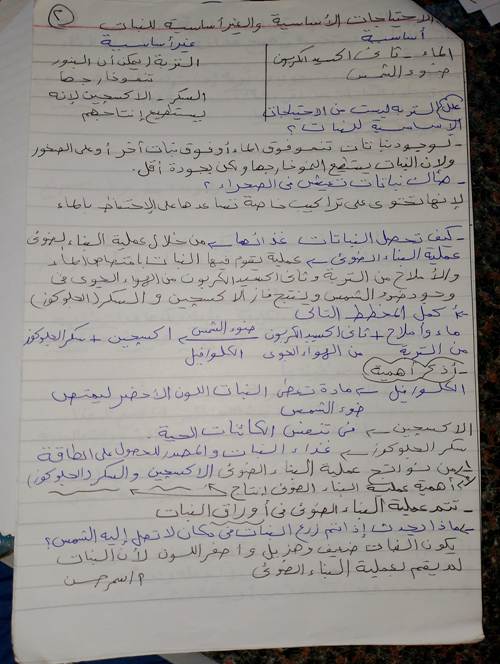 ٢
الاحتياجات الأساسية والغير أساسية للنبات
أساسية
غير أساسية
الماء - ثاني اكسيد الكربون
ضوء الشمس
التربة (يمكن أن البذور
تنمو خارجها
السكر - الاكسجين لإنه
يستطيع إنتاجهم
علل التربه ليست من الاحتياجات
الأساسية للنبات ؟
- لوجود نباتات تنمو فوق الماء أو فوق نبات آخر أو على الصخور
ولإن النبات يستطيع النمو خارجها ولكن بجودة أقل.
- هناك نباتات تعيش في الصحراء ؟
لإنها تحتوى على تراكيب خاصة تساعدها على الإحتفاظ بالماء
- كيف تحصل النباتات غذائها ← من خلال عملية البناء الضوئى
عملية البناء الضوئى ← عملية يقوم فيها النبات بامتصاص الماء
والأملاح من التربة وثانى اكسيد الكربون من الهواء الجوى فى
وجود ضوء الشمس وينتج غاز الاكسجين والسكر (الجلوكوز)
أكمل المخطط التالى
ماء وأملاح + ثانى اكسيد الكربون ضوء الشمس ← اكسجين + سكر الجلوكوز
من التربة من الهواء الجوى الكلوروفيل
- أذكر أهمية
الكلوروفيل ← مادة تعطى النبات اللون الأخضر ليمتص
ضوء الشمس
الاكسجين ← فى تنفس الكائنات الحية.
سكر الجلوكوز ← غذاء النبات والمصدر للحصول على الطاقة
من نواتج عملية البناء الضوئى الاكسجين والسكر (الجلوكوز)
أهمية عملية البناء الضوئى إنتاج
- تتم عملية البناء الضوئى فى أوراق النبات
ماذا يحدث إذا تم زرع النبات فى مكان لا تصل إليه الشمس؟
يكون النبات ضعيف وهزيل واصفر اللون لأن النبات
لم يقم بعملية البناء الضوئى